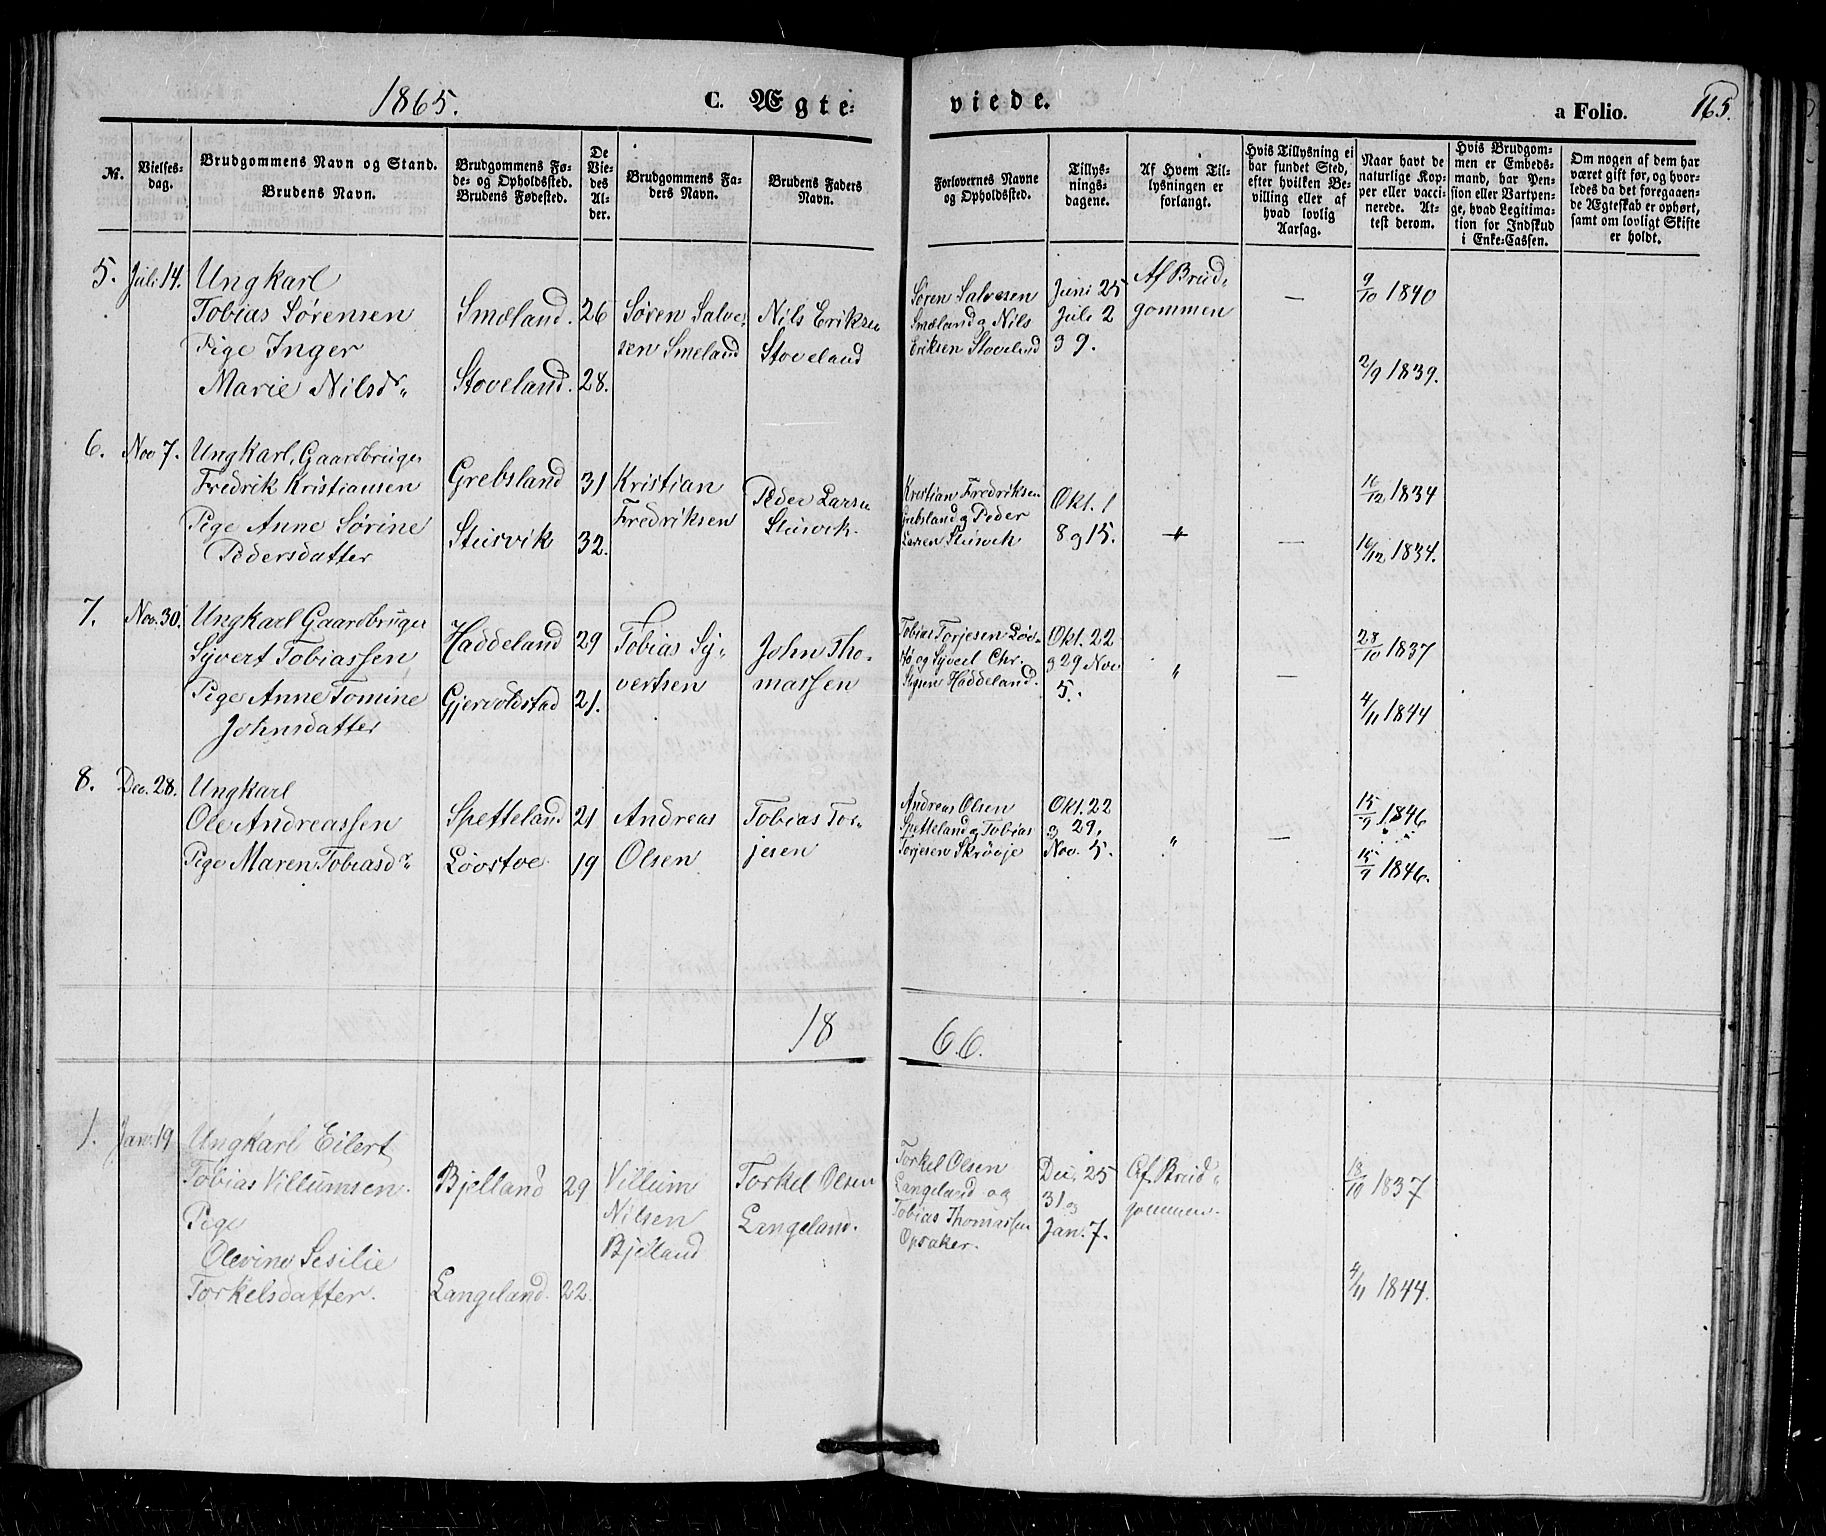 1865.
C. Ægte-
viede.
a Folio.
165.
№.
Vielses-
dag.
Brudgommens Navn og Stand.
Brudens Navn.
Brudgommens Fø-
de- og Opholdssted.
Brudens Fødested.
De
Vie-
des
Al-
der.
Brudgommens Fa-
ders Navn.
Brudens Faders
Navn.
Forlovernes Navne
og Opholdssted.
Tillys-
nings-
dagene.
Af Hvem Til-
lysningen er
forlangt.
Hvis Tillysning ei
har fundet Sted,
efter hvilken Be-
villing eller af
hvad lovlig
Aarsag.
Naar havt de
naturlige Kop-
per eller vacci-
nerede. At-
test derom.
Hvis Brudgom-
men er Embeds-
mand, har Pen-
sion eller Vartpen-
ge, hvad Legitima-
tion for Indskud
i Enke-Cassen.
Om nogen af dem har
været gift før, og hvor-
ledes da det foregaaen-
de Ægteskab er ophørt,
samt om lovligt Skifte
er holdt.
5. Juli 14.
Ungkarl
Tobias Sørensen
Pige Inger
Marie Nilsdr.
Smæland. 26
Stoveland. 28.
Søren Salve-
sen Smeland
Nils Eriksen
Stoveland
Søren Salvesen
Smæland og Nils
Eriksen Stoveland
Juni 25
Juli 2
og 9.
Af Brud-
gommen
—
9/10 1840
2/9 1839.
6. Nov 7.
Ungkarl, Gaardbruger
Fredrik Kristiansen
Pige Anne Sørine
Pedersdatter
Grebsland 31
Stusvik 32.
Kristian
Fredriksen
Peder Larsen
Stusvik.
Kristian Fredriksen
Grebsland og Peder
Larsen Stusvik
Okt. 1
8 og 15.
"
—
16/12 1834
16/12 1834.
7. Nov. 30.
Ungkarl Gaardbruger
Syvert Tobiassen
Pige Anne Tomine
Johnsdatter
Haddeland 29
Gjervoldstad 21.
Tobias Sy-
vertsen
John Tho-
massen
Tobias Torjesen Løv-
stø og Syvert Chr.
Haddeland.
Okt. 22
og 29 Nov
5.
"
—
28/10 1837
4/11 1844
8. Dec. 28.
Ungkarl
Ole Andreassen
Pige Maren Tobiasdr.
Spetteland 21
Løvstoe 19
Andreas
Olsen
Tobias Tor-
jesen
Andreas Olsen
Spetteland og Tobias
Torjesen Skrøvje
Okt. 22
og 29.
Nov. 5.
"
—
15/9 1846
15/9 1846.
18 66.
1. Jan. 19
Ungkarl Eilert
Tobias Villumsen.
Pige
Olevine Sesilie
Torkelsdatter.
Bjelland 29
Langeland. 22.
Villum
Nilsen
Bjelland
Torkel Olsen
Langeland.
Torkel Olsen
Langeland og
Tobias Thomassen
Opsaker.
Dec. 25
31 og
Jan. 7.
Af Brud-
gommen.
13/10 1837
4/11 1844.